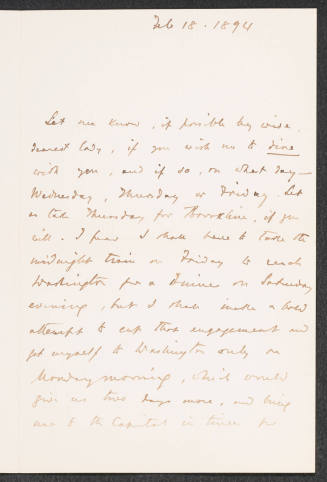 Feb 18. 1894
Let me know, if possible by wire,
dearest lady, if you wish me to dine
with you, and if so, on what day—
Wednesday, Thursday or Friday. Let
us take Thursday for Brookline, if you
will. I fear I shall have to take the
midnight train on Friday to reach
Washington for a dinner on Saturday
evening, but I shall make a bold
attempt to cut that engagement and
get myself to Washington only on
Monday morning, which would
give us two days more, and bring
me to the Capitol in time for